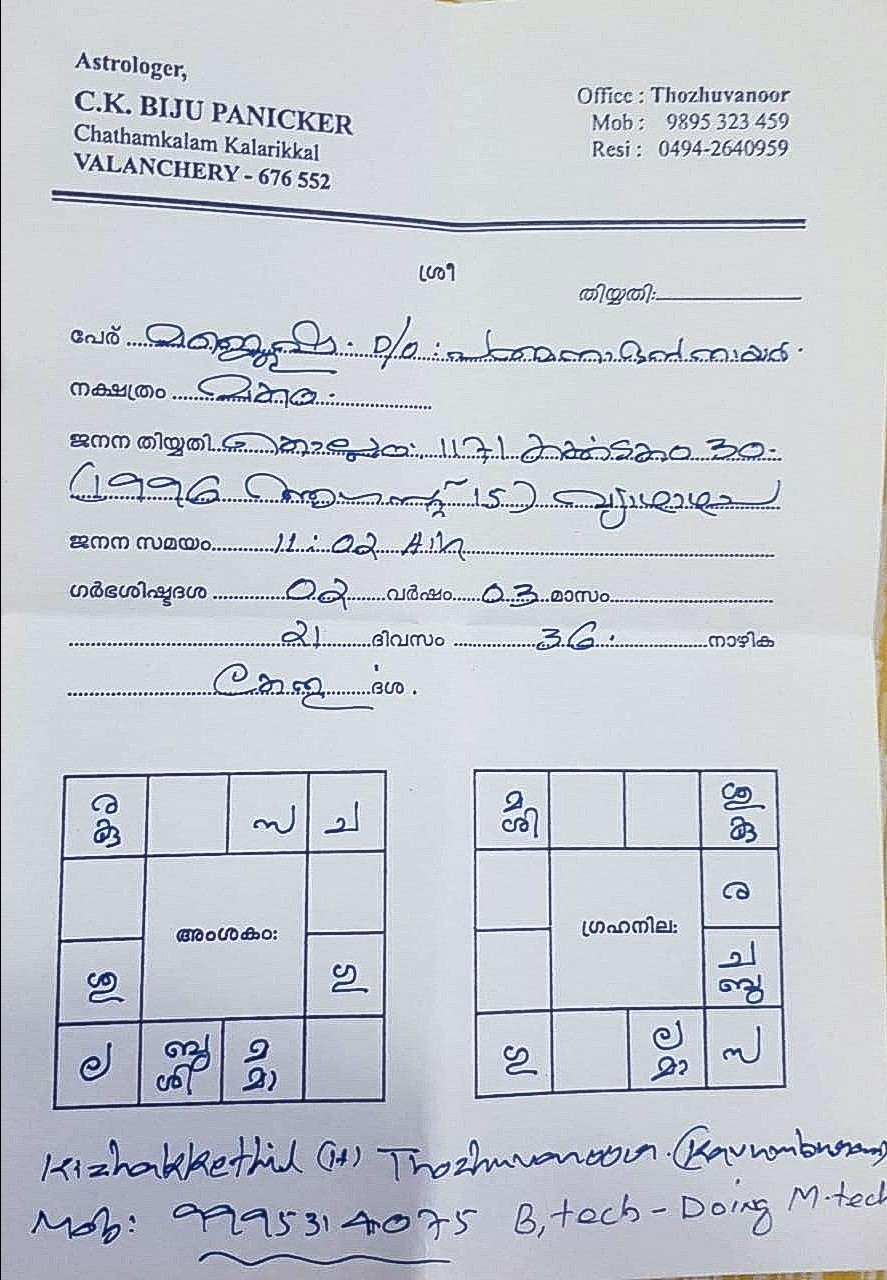 Astrologer,
C.K. BIJU PANICKER
Chathamkalam Kalarikkal
VALANCHERY - 676 552
Office : Thozhuvanoor
Mob : 9895 323 459
Resi : 0494-2640959
ശ്രീ
തിയ്യതി:
പേര് മഞ്ജുഷ. D/o : പത്മനാഭൻ നായർ.
നക്ഷത്രം മകം.
ജനന തിയ്യതി കൊല്ലം 1171 കർക്കടകം 30.
(1996 ആഗസ്റ്റ് 15) വ്യാഴാഴ്ച
ജനന സമയം 11:02 AM
ഗർഭശിഷ്ടദശ 02 വർഷം 03 മാസം
21 ദിവസം 36. നാഴിക
കേതു ദശ.
ര കു
സ
ച
അംശകം:
ശു
ഗു
ല
ബു ശി
മ മാ
മ ശി
ശു കു
ര
ഗ്രഹനില:
ച ബു
ഗു
ല മാ
സ
Kizhakkethil (H) Thozhuvanoor. (Kavumburam)
Mob: 9995314075 B,tech - Doing M.tech